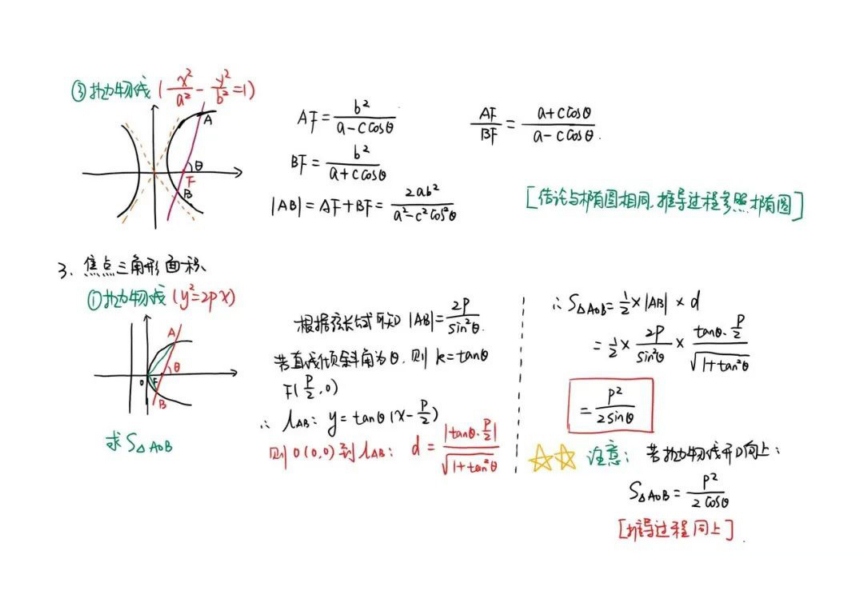 ③抛物线 (x²/a² - y²/b² = 1)
A
θ
F
B
AF = b²/(a - c cosθ)
BF = b²/(a + c cosθ)
|AB| = AF + BF = 2ab²/(a² - c² cos²θ)
AF/BF = (a + c cosθ)/(a - c cosθ).
[结论与椭圆相同,推导过程参照椭圆]
3、焦点三角形面积、
①抛物线 (y² = 2px)
A
θ
O
F
B
求 S△AOB
根据弦长式可知 |AB| = 2p/sin²θ.
若直线倾斜角为θ,则 k = tanθ
F(p/2, 0)
∴ l_AB: y = tanθ (x - p/2)
则 O(0,0) 到 l_AB: d = |tanθ·p/2|/√(1 + tan²θ)
∴ S△AOB = 1/2 × |AB| × d
= 1/2 × 2p/sin²θ × (tanθ·p/2)/√(1 + tan²θ)
= p²/(2 sinθ)
☆☆ 注意: 若抛物线开口向上:
S△AOB = p²/(2 cosθ)
[推导过程同上].